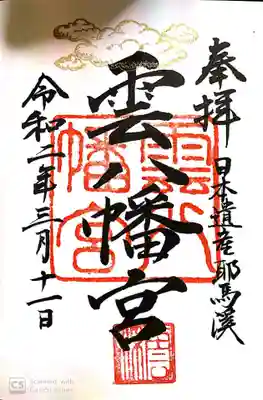 奉拝 日本遺産耶馬溪
雲八幡宮
令和二年三月十一日
雲八
幡宮
CS Scanned with
CamScanner